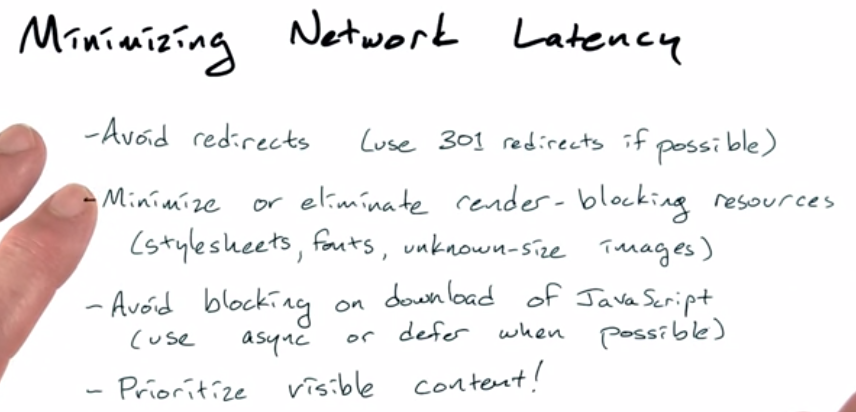 Minimizing Network Latency
-Avoid redirects (use 301 redirects if possible)
-Minimize or eliminate render-blocking resources
(stylesheets, fonts, unknown-size images)
- Avoid blocking on download of JavaScript
(use async or defer when possible)
- Prioritize visible content!